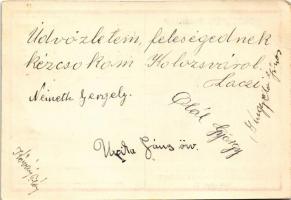 Üdvözletem, feleségednek
kézcsókom Kolozsvárról.
Laczi
Németh Gergely.
Oláh György
János